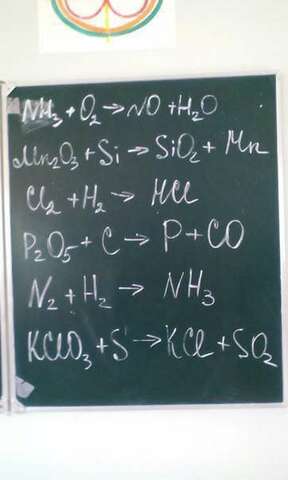 NH₃ + O₂ → NO + H₂O
Mn₂O₃ + Si → SiO₂ + Mn
Cl₂ + H₂ → HCl
P₂O₅ + C → P + CO
N₂ + H₂ → NH₃
KClO₃ + S → KCl + SO₂